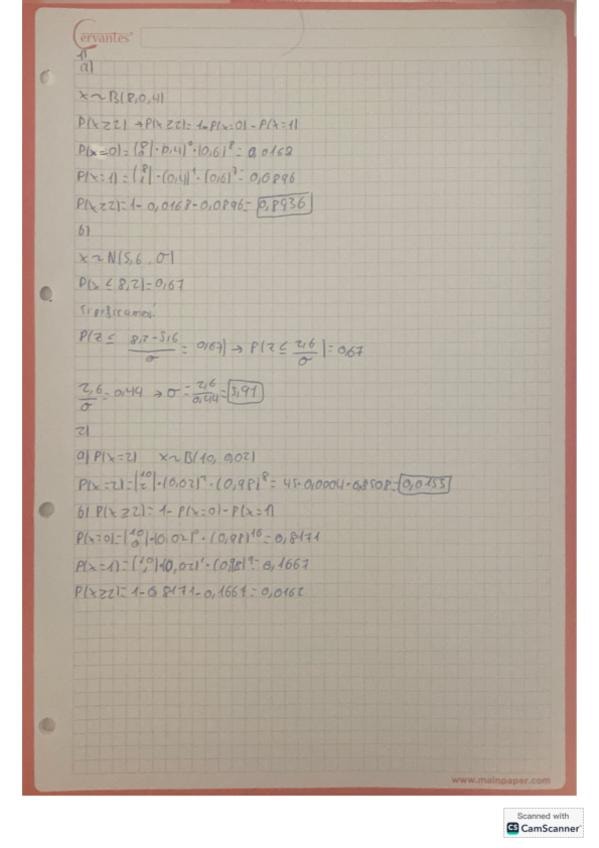 Cervantes
1)
a)
x~B(8,0,4)
P(x≥2) → P(x≥2)= 1-P(x=0)-P(x=1)
P(x=0)=(8 0)·(0,4)⁰·(0,6)⁸=0,0168
P(x=1)=(8 1)·(0,4)¹·(0,6)⁷=0,0896
P(x≥2)=1-0,0168-0,0896=0,8936
b)
x~N(5,6, σ)
P(x ≤ 8,2)=0,67
Tipificamos:
P(z ≤ 8,2-5,6/σ = 0,67) → P(z ≤ 2,6/σ)=0,67
2,6/σ=0,44 → σ=2,6/0,44=5,91
2)
a) P(x=2) x~B(10, 0,02)
P(x=2)=(10 2)·(0,02)²·(0,98)⁸= 45·0,0004·0,8508=0,0153
b) P(x≥2)=1-P(x=0)-P(x=1)
P(x=0)=(10 0)·(0,02)⁰·(0,98)¹⁰=0,8171
P(x=1)=(10 1)·(0,02)¹·(0,98)⁹=0,1667
P(x≥2)=1-0,8171-0,1667=0,0162
www.mainpaper.com
Scanned with
CS CamScanner